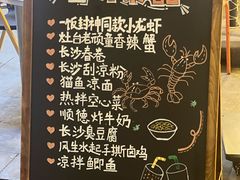 一饭封神同款小龙虾
灶台老顽童香辣蟹
长沙春卷
长沙刮凉粉
猫鱼凉面
热拌空心菜
顺德炸牛奶
长沙臭豆腐
风生水起手撕卤鸡
凉拌鲫鱼